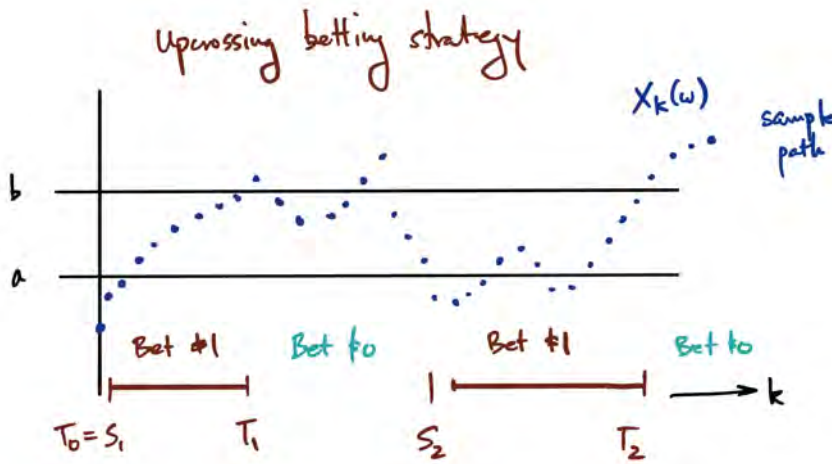 Upcrossing betting strategy
X_k(ω)
sample path
b
a
Bet $1
Bet $0
Bet $1
Bet $0
k
T_0 = S_1
T_1
S_2
T_2